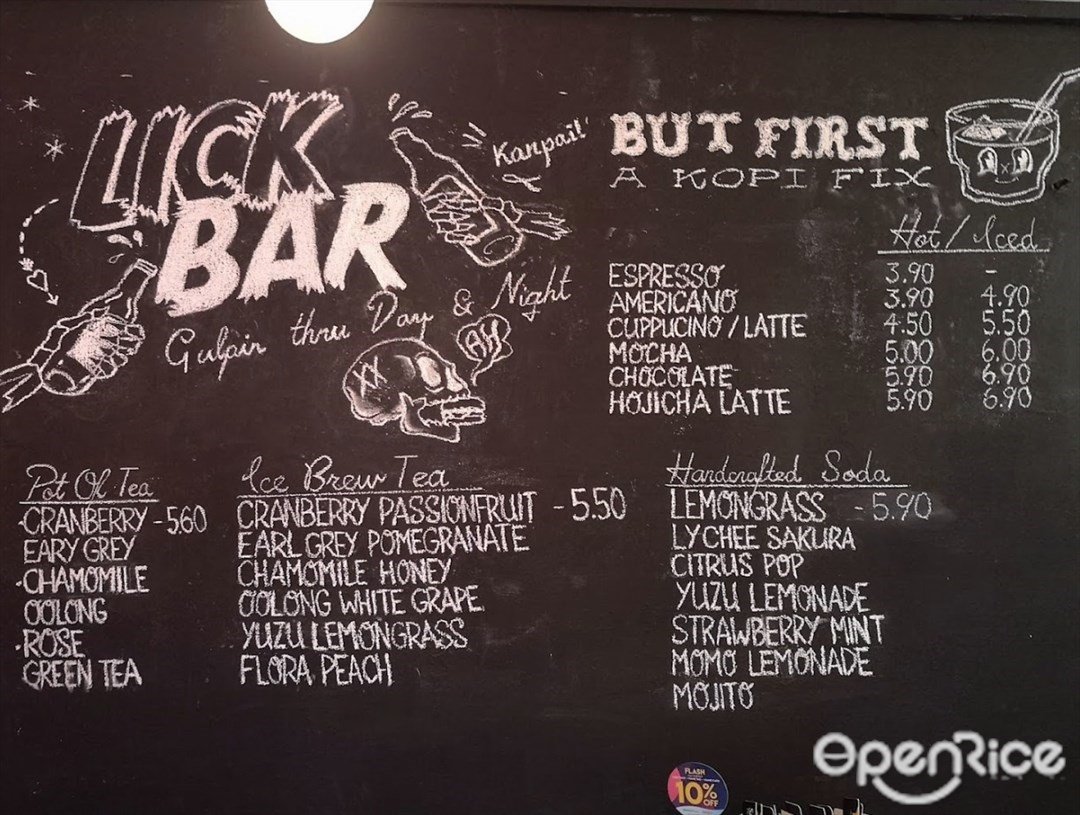 LICK
BAR
Kanpai!
Gulpin thru Day & Night
AH
XX
BUT FIRST
A KOPI FIX
Hot / Iced
ESPRESSO 3.90 -
AMERICANO 3.90 4.90
CUPPUCINO / LATTE 4.50 5.50
MOCHA 5.00 6.00
CHOCOLATE 5.90 6.90
HOJICHA LATTE 5.90 6.90
Pot Of Tea
·CRANBERRY - 5.60
EARY GREY
·CHAMOMILE
OOLONG
·ROSE
GREEN TEA
Ice Brew Tea
CRANBERRY PASSIONFRUIT - 5.50
EARL GREY POMEGRANATE
CHAMOMILE HONEY
OOLONG WHITE GRAPE
YUZU LEMONGRASS
FLORA PEACH
Handcrafted Soda
LEMONGRASS - 5.90
LYCHEE SAKURA
CITRUS POP
YUZU LEMONADE
STRAWBERRY MINT
MOMO LEMONADE
MOJITO
FLASH
10% OFF
OpenRice